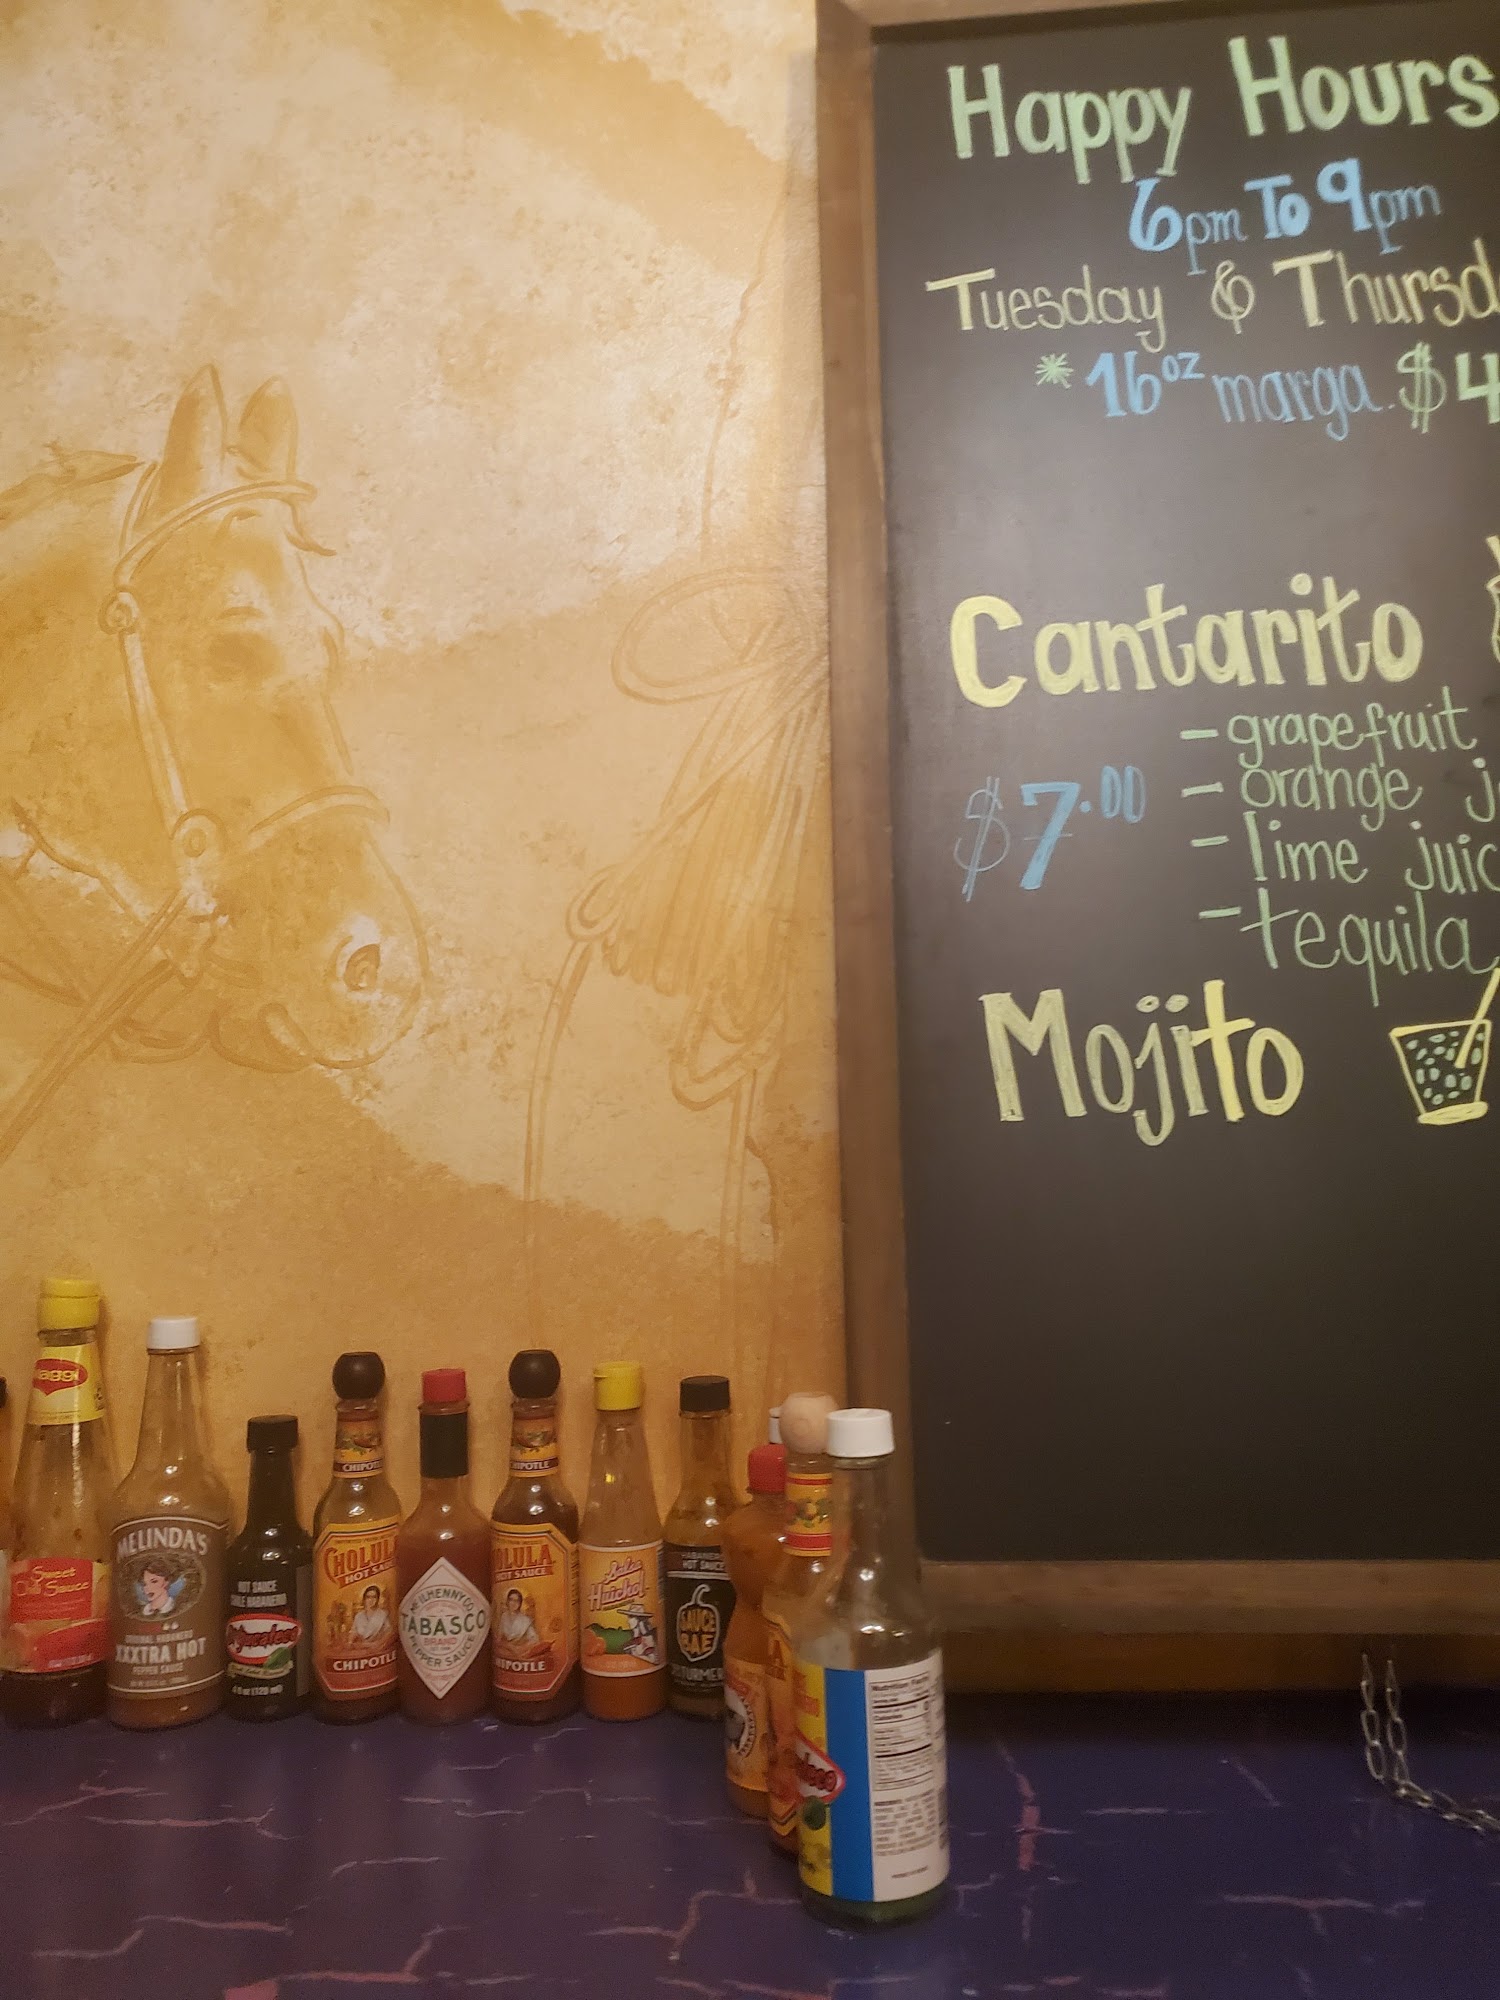 Happy Hours
6pm To 9pm
Tuesday & Thursd
* 16oz marga. $4
Cantarito
- grapefruit
$7.00
- orange j
- lime juic
- tequila
Mojito
aggi
Sweet
Chili Sauce
MELINDA'S
ORIGINAL HABANERO
XXXTRA HOT
PEPPER SAUCE
HOT SAUCE
CHILE HABANERO
4 oz (120 ml)
CHIPOTLE
CHOLULA
HOT SAUCE
CHIPOTLE
McILHENNY CO
TABASCO
BRAND
PEPPER SAUCE
CHIPOTLE
OLULA
HOT SAUCE
CHIPOTLE
Salsa
Huichol
HABANERO
HOT SAUCE
SAUCE
BAE
TURMER
Nutrition Facts
Calories